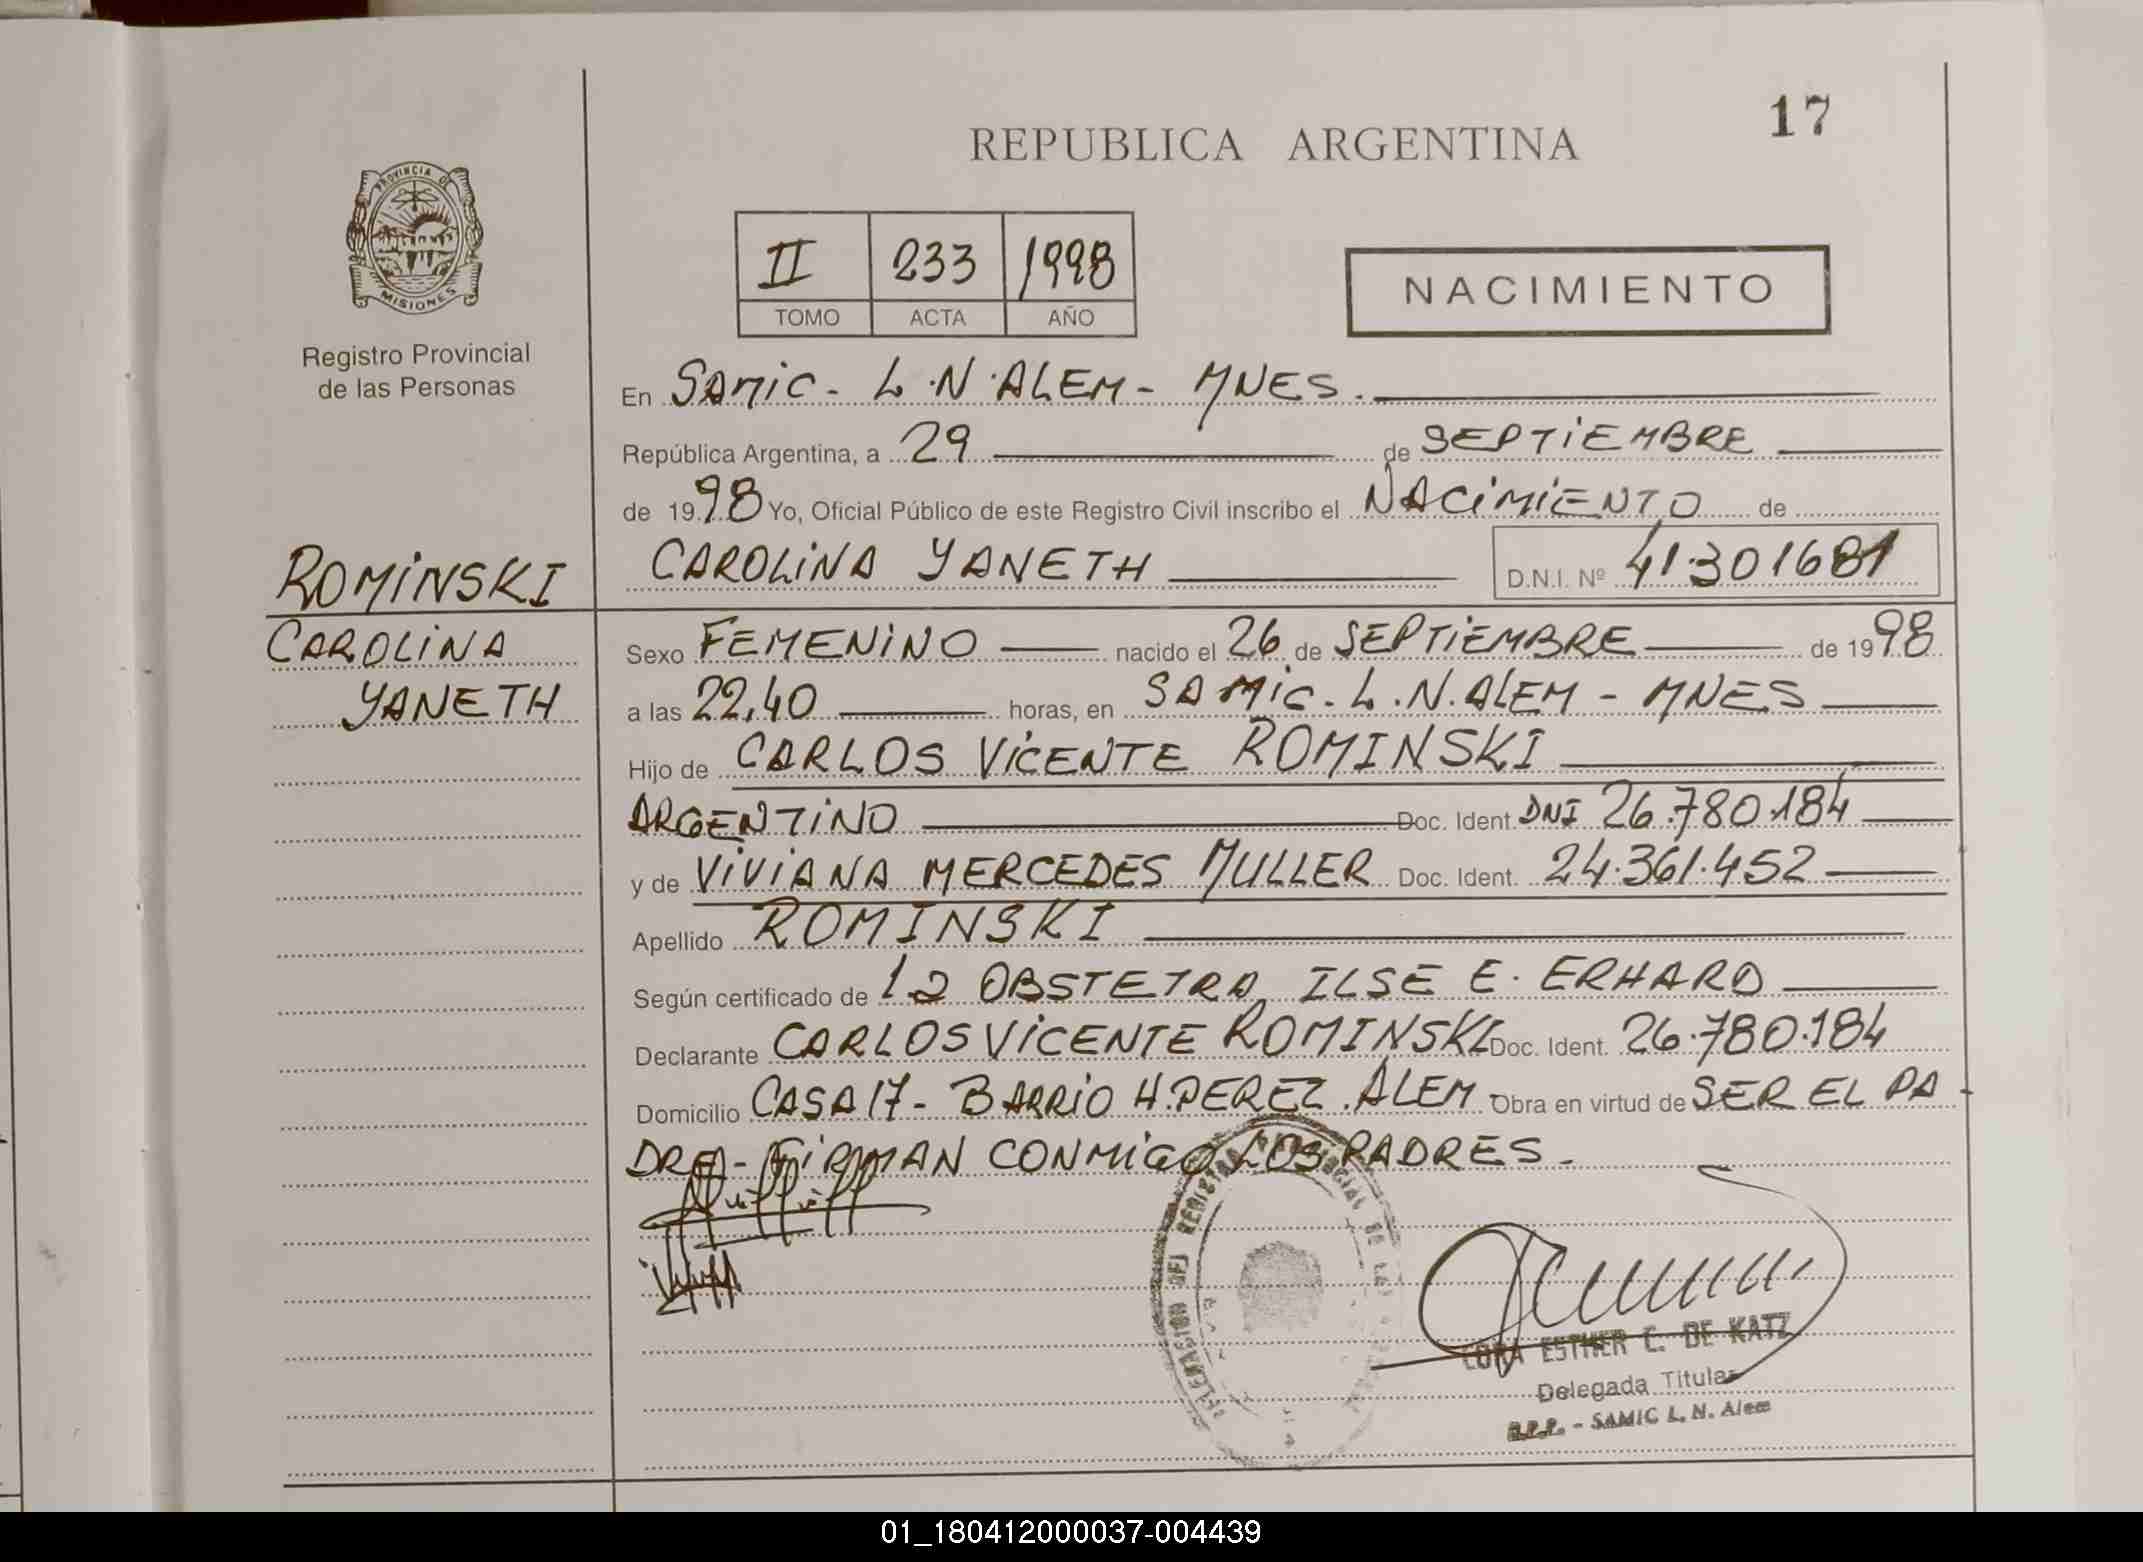 17
REPUBLICA ARGENTINA
PROVINCIA DE
MISIONES
Registro Provincial
de las Personas
II 233 1998
TOMO ACTA AÑO
NACIMIENTO
En SAMIC - L.N.ALEM - MNES.
República Argentina, a 29 de SEPTIEMBRE
de 1998 Yo, Oficial Público de este Registro Civil inscribo el NACIMIENTO de
CAROLINA YANETH D.N.I. Nº 41.301681
ROMINSKI
CAROLINA
YANETH
Sexo FEMENINO nacido el 26 de SEPTIEMBRE de 1998
a las 22,40 horas, en SAMIC - L.N.ALEM - MNES
Hijo de CARLOS VICENTE ROMINSKI
ARGENTINO Doc. Ident. DNI 26.780.184
y de VIVIANA MERCEDES MULLER Doc. Ident. 24.361.452
Apellido ROMINSKI
Según certificado de la OBSTETRA ILSE E. ERHARD
Declarante CARLOS VICENTE ROMINSKI Doc. Ident. 26.780.184
Domicilio CASA 17 - BARRIO H.PEREZ.ALEM Obra en virtud de SER EL PA-
DRE - FIRMAN CONMIGO LOS PADRES -
ESTHER C. DE KATZ
Delegada Titular
R.P.P. - SAMIC L. N. Alem
01_180412000037-004439